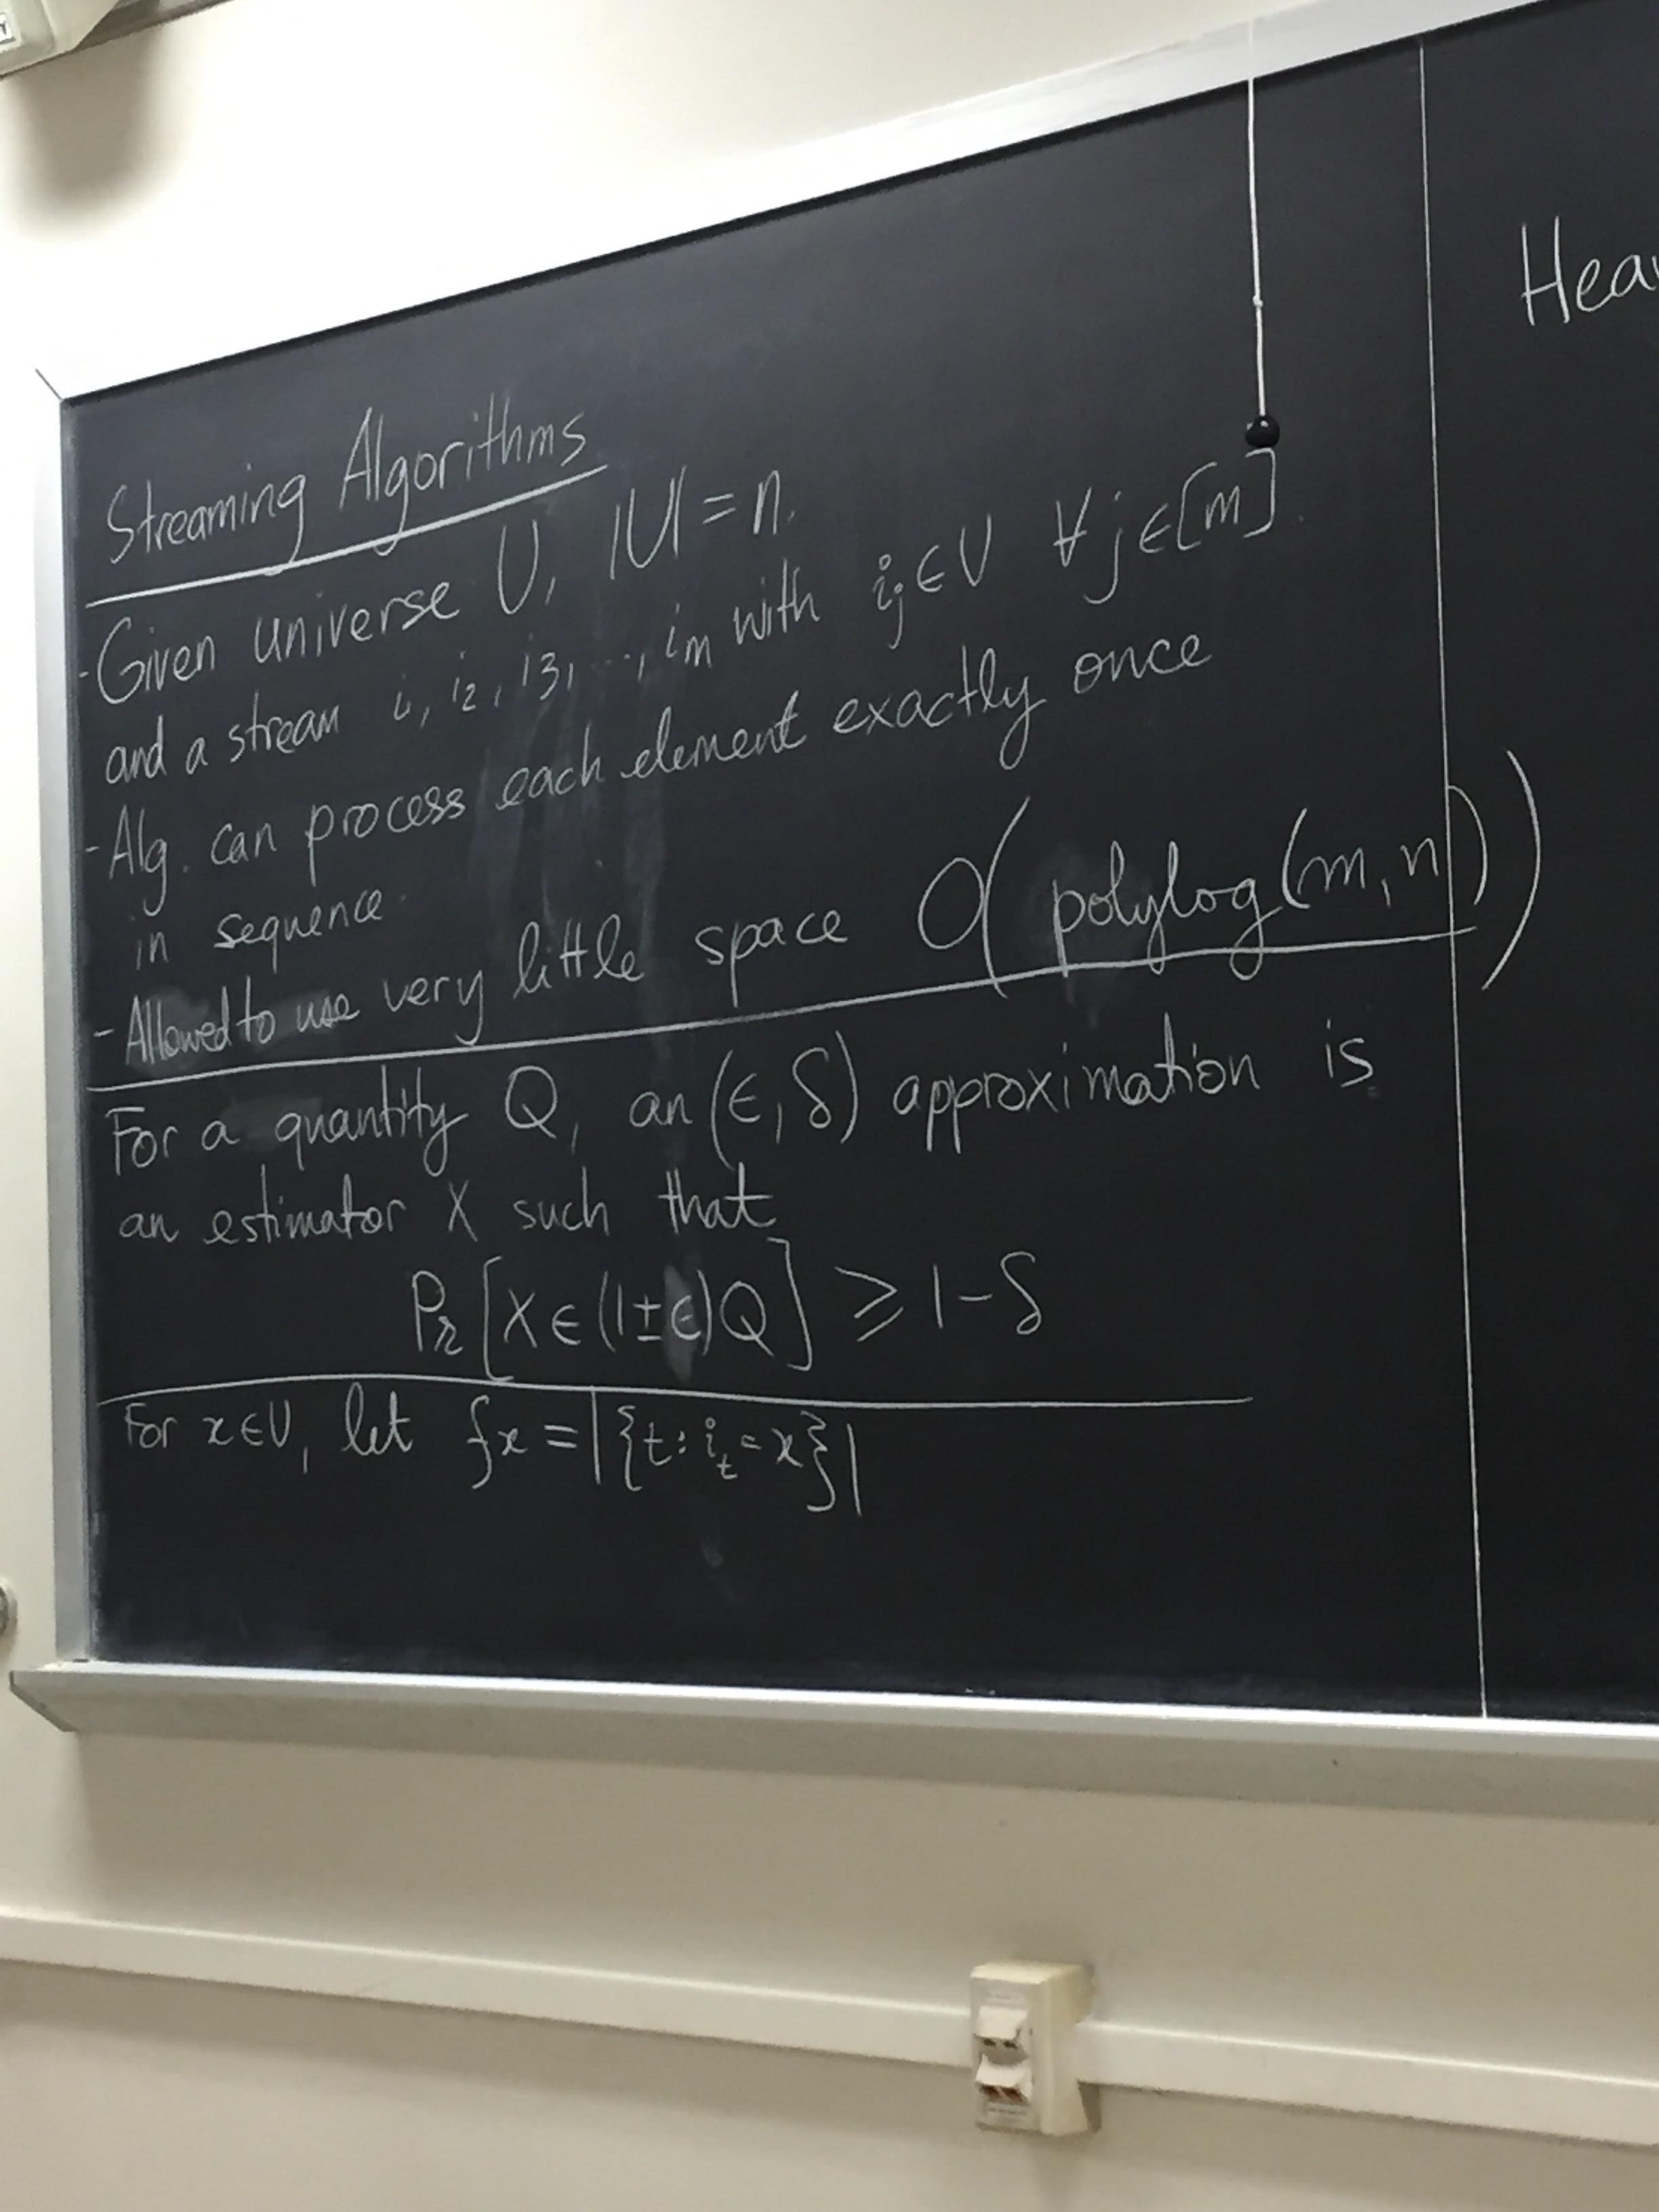 Streaming Algorithms
- Given universe U, |U| = n.
and a stream i₁, i₂, i₃, ..., iₘ with iⱼ ∈ U ∀ j ∈ [m].
- Alg. can process each element exactly once
in sequence.
- Allowed to use very little space O(polylog(m, n))
For a quantity Q, an (ε, δ) approximation is
an estimator X such that
Pr[X ∈ (1 ± ε)Q] ≥ 1 - δ
For x ∈ U, let fx = |{t: iₜ = x}|